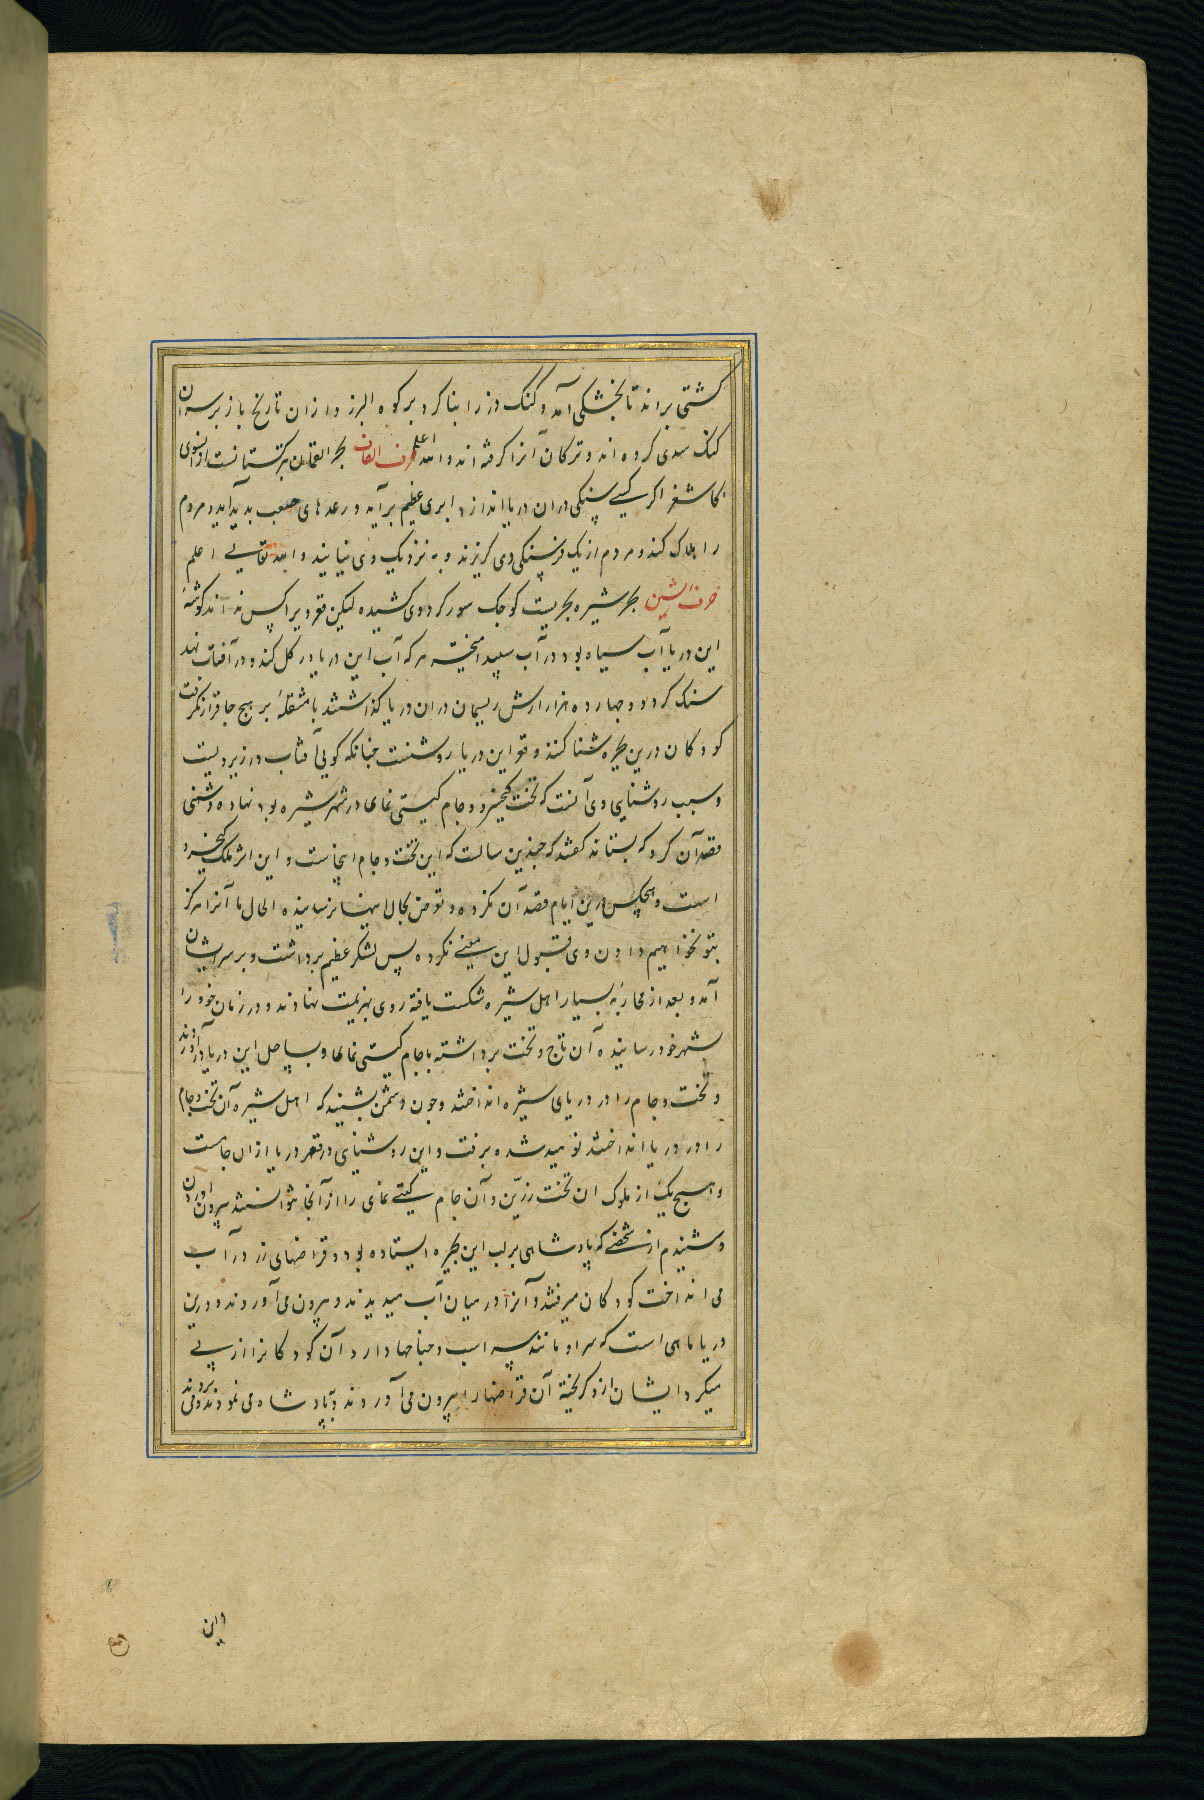 کشتی براند تا بخشکی آمد و کنک دز را بنا کرد بر کوه البرز و ازان تاریخ باز بر سر ان
کنک سدی کرده اند و ترکان آنرا کرفته اند والله اعلم حرف القاف بحر القمان بترکستانست ازانسوی
کاشغر اکر کسی سنکی دران دریا اندازد ابری عظیم برآید و رعدهای صعب بدید آید و مردم
را هلاک کند و مردم از یک فرسنکی وی کریزند و به نزدیک وی نیایند والله تعالی اعلم
حرف الشین بحر شیره بحریست کوجک سور کرد وی کشیده لیکن قعر ویرا کس نداند کوشهٔ
این دریا آب سیاه بود در آب سپید امیخته هر که آب این دریا در کل کند و در آفتاب نهد
سنک کردد و جهارده هزار ارش ریسمان دران دریا کذاشتند با مثقلهٔ بر هیج جا قرار نکرفت
کودکان درین بحیره شنا کنند و قعر این دریا روشنست جنانکه کویی آفتاب در زیر ویست
و سبب روشنایی وی آنست که تخت کیخسرو و جام کیتی نمای در شهر شیره بود نهاده دشمنی
قصد آن کرد که بستاند کفتند که جندین سالست که این تخت و جام اینجاست و این اثر ملک کیخسرو
است و هیجکس درین ایام قصد آن نکرده و تعرض بحال اینها نرسانیده الحال ما آنرا هرکز
بتو نخواهیم دادن وی قبول این معنی نکرده پس لشکر عظیم برداشت و بر سر ایشان
آمد و بعد از محاربهٔ بسیار اهل شیره شکست یافته روی بهزیمت نهادند و در زمان خود را
بشهر خود رسانیده آن تاج و تخت برداشته با جام کیتی نمای و بساحل این دریا درآوردند
و تخت و جام را در دریای شیره انداختند وجون دشمن بشنید که اهل شیره آن تخت و جام
را در دریا انداختند نومید شده برفت و این روشنایی در قعر دریا ازان جامست
و هیج یک از ملوک ان تخت زرین و آن جام کیتی نمای را از آنجا نتوانستند بیرون اوردن
و شنیدم از شخصی که پادشاهی بر لب این بحیره ایستاده بود و قراضهای زر در آب
می انداخت کودکان میرفتند و آنرا در میان آب میدیدند و بیرون می آوردند و درین
دریا ماهی است که سر او مانند سر اسب و جناحها دارد آن کودکانرا از پی
میکرد ایشان ازو کریخته آن قراضها را بیرون می آوردند و بپادشاه می نمودند و می بردند
و این